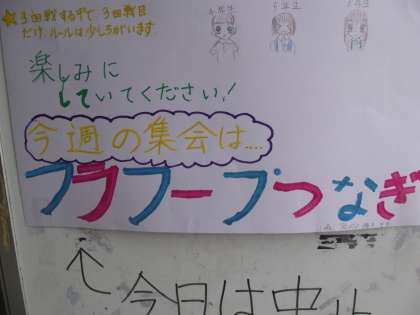 ★3回戦するけで、3回戦目
だけ、ルールは少しちがいます
年生
年生
年生
楽しみに
していてください!
今週の集会は....
フラフープつなぎ
今日は中止